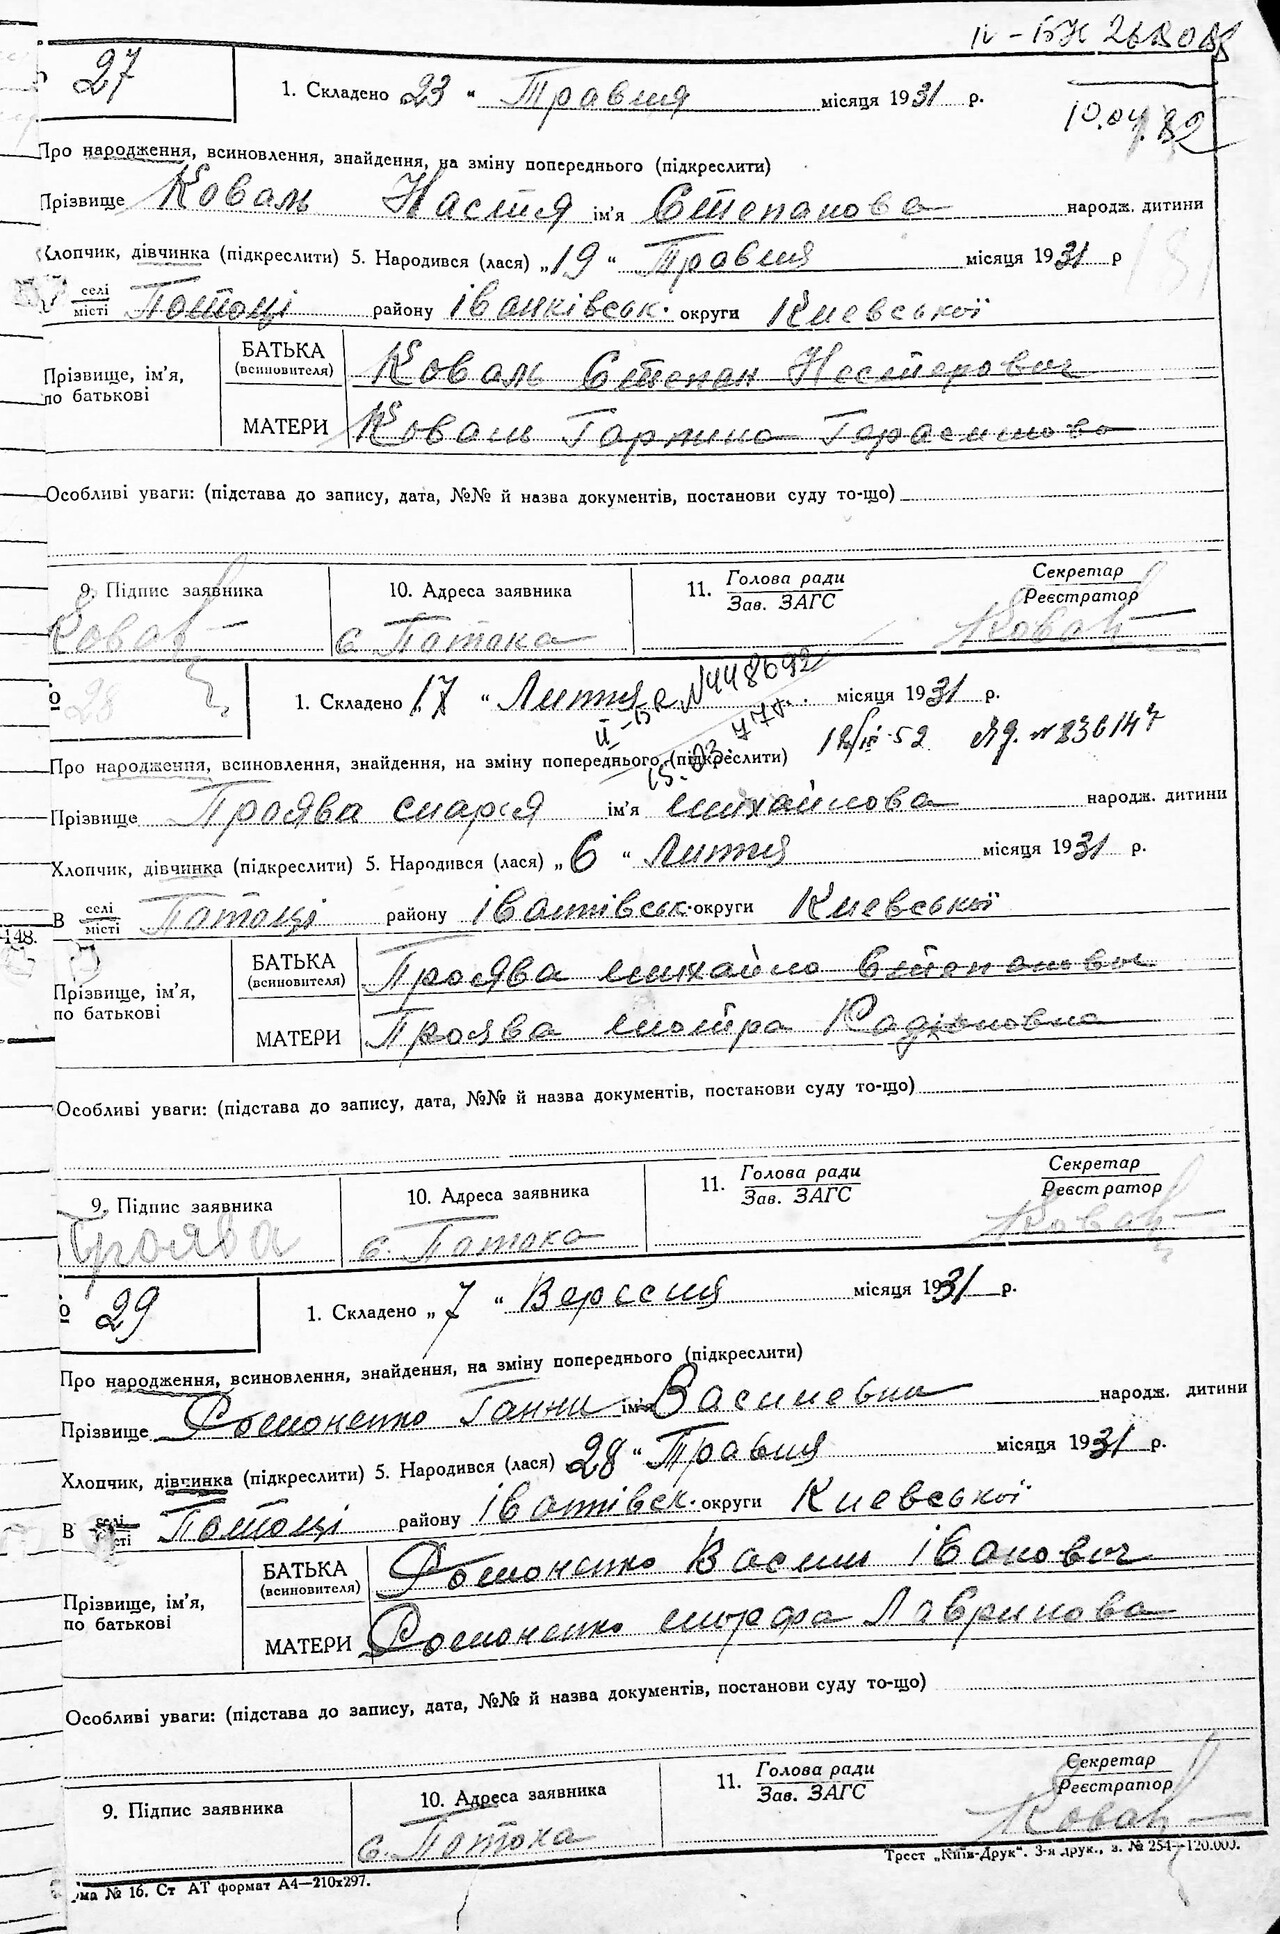 27
1. Складено 23 " Травня місяця 1931 р.
10.04.82
Про народження, всиновлення, знайдення, на зміну попереднього (підкреслити)
Прізвище Коваль Настя ім'я Степанова народж. дитини
Хлопчик, дівчинка (підкреслити) 5. Народився (лася) „19 " Травня місяця 1931 р
селі
місті Потоці району Іванківськ. округи Киевської
Прізвище, ім'я, по батькові
БАТЬКА (всиновителя) Коваль Степан Нестерович
МАТЕРИ Коваль Гарпина Герасимова
Особливі уваги: (підстава до запису, дата, №№ й назва документів, постанови суду то-що)
9. Підпис заявника
10. Адреса заявника
11. Голова ради
Зав. ЗАГС
Секретар
Реєстратор
Коваль
с. Потока
28
1. Складено 17 " Лютня місяця 1931 р.
N448692
15.03.77г.
Про народження, всиновлення, знайдення, на зміну попереднього (підкреслити)
Прізвище Проява Марія ім'я Михайлова народж. дитини
Хлопчик, дівчинка (підкреслити) 5. Народився (лася) „6 " Лютня місяця 1931 р.
В селі
місті Потоці району Іванківськ. округи Киевської
148.
Прізвище, ім'я, по батькові
БАТЬКА (всиновителя) Проява Михайло Степанович
МАТЕРИ Проява Мотра Радіоновна
Особливі уваги: (підстава до запису, дата, №№ й назва документів, постанови суду то-що)
9. Підпис заявника
10. Адреса заявника
11. Голова ради
Зав. ЗАГС
Секретар
Реєстратор
Проява
с. Потока
29
1. Складено „7 " Вересня місяця 1931 р.
Про народження, всиновлення, знайдення, на зміну попереднього (підкреслити)
Прізвище Ганни ім'я Василевна народж. дитини
Хлопчик, дівчинка (підкреслити) 5. Народився (лася) 28 " Травня місяця 1931 р.
В селі
місті Потоці району Іванківск. округи Киевської
Прізвище, ім'я, по батькові
БАТЬКА (всиновителя) Василь Іванович
МАТЕРИ Марфа Лавринова
Особливі уваги: (підстава до запису, дата, №№ й назва документів, постанови суду то-що)
9. Підпис заявника
10. Адреса заявника
11. Голова ради
Зав. ЗАГС
Секретар
Реєстратор
с. Потока
Трест „Київ-Друк". 3-я друк., з. № 254—120.000.
ма № 16. Ст АТ формат А4—210х297.